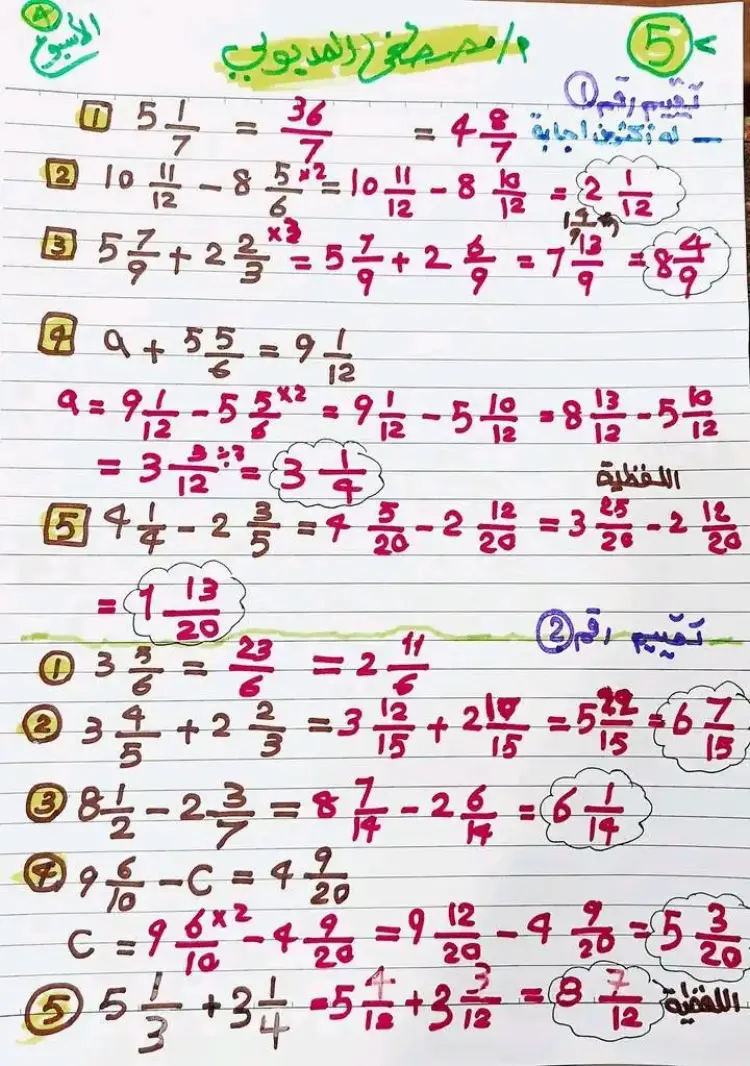 الأسبوع 4 م/مصطفى المديولي 5 >
تقييم رقم 1
1 5 1/7 = 36/7 = 4 8/7 — له أكثر من إجابة
2 10 11/12 - 8 5/6 ×2 = 10 11/12 - 8 10/12 = 2 1/12
3 5 7/9 + 2 2/3 ×3 = 5 7/9 + 2 6/9 = 7 13/9 = 8 4/9
4 a + 5 5/6 = 9 1/12
a = 9 1/12 - 5 5/6 ×2 = 9 1/12 - 5 10/12 = 8 13/12 - 5 10/12
= 3 3/12 ÷3 = 3 1/4 اللفظية
5 4 1/4 - 2 3/5 = 4 5/20 - 2 12/20 = 3 25/20 - 2 12/20
= 1 13/20
تقييم رقم 2
1 3 5/6 = 23/6 = 2 11/6
2 3 4/5 + 2 2/3 = 3 12/15 + 2 10/15 = 5 22/15 = 6 7/15
3 8 1/2 - 2 3/7 = 8 7/14 - 2 6/14 = 6 1/14
4 9 6/10 - C = 4 9/20
C = 9 6/10 ×2 - 4 9/20 = 9 12/20 - 4 9/20 = 5 3/20
5 5 1/3 + 3 1/4 = 5 4/12 + 3 3/12 = 8 7/12 اللفظية